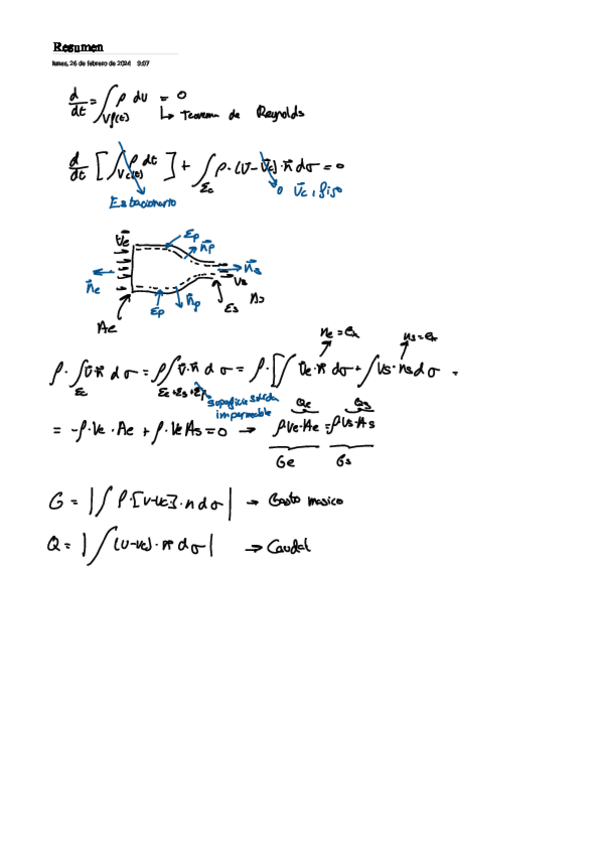 Resumen
lunes, 26 de febrero de 2024 9:07
d/dt = ∫Vf(t) ρ dv = 0
↳ Teorema de Reynolds
d/dt [∫Vc(t) ρ dt] + ∫Σc ρ·(v̄-v̄c)·n̄ dσ = 0
Estacionario
0 v̄c, fijo
v̄e Σp n̄p
n̄e n̄s
Vs
Σp n̄p Σs As
Ae
ne = ex ns = ex
ρ·∫Σc v̄·n̄ dσ = ρ∫Σe+Σs+Σp v̄·n̄ dσ = ρ·[∫ v̄e·n̄ dσ + ∫vs·ns dσ =
superficie solida
impermeable
Qe Qs
= -ρ·Ve·Ae + ρ·Ve As = 0 → ρVe·Ae = ρVs·As
Ge Gs
G = |∫ρ·[v-vc]·n dσ| → Gasto masico
Q = |∫(v-vc)·n̄ dσ| → Caudal